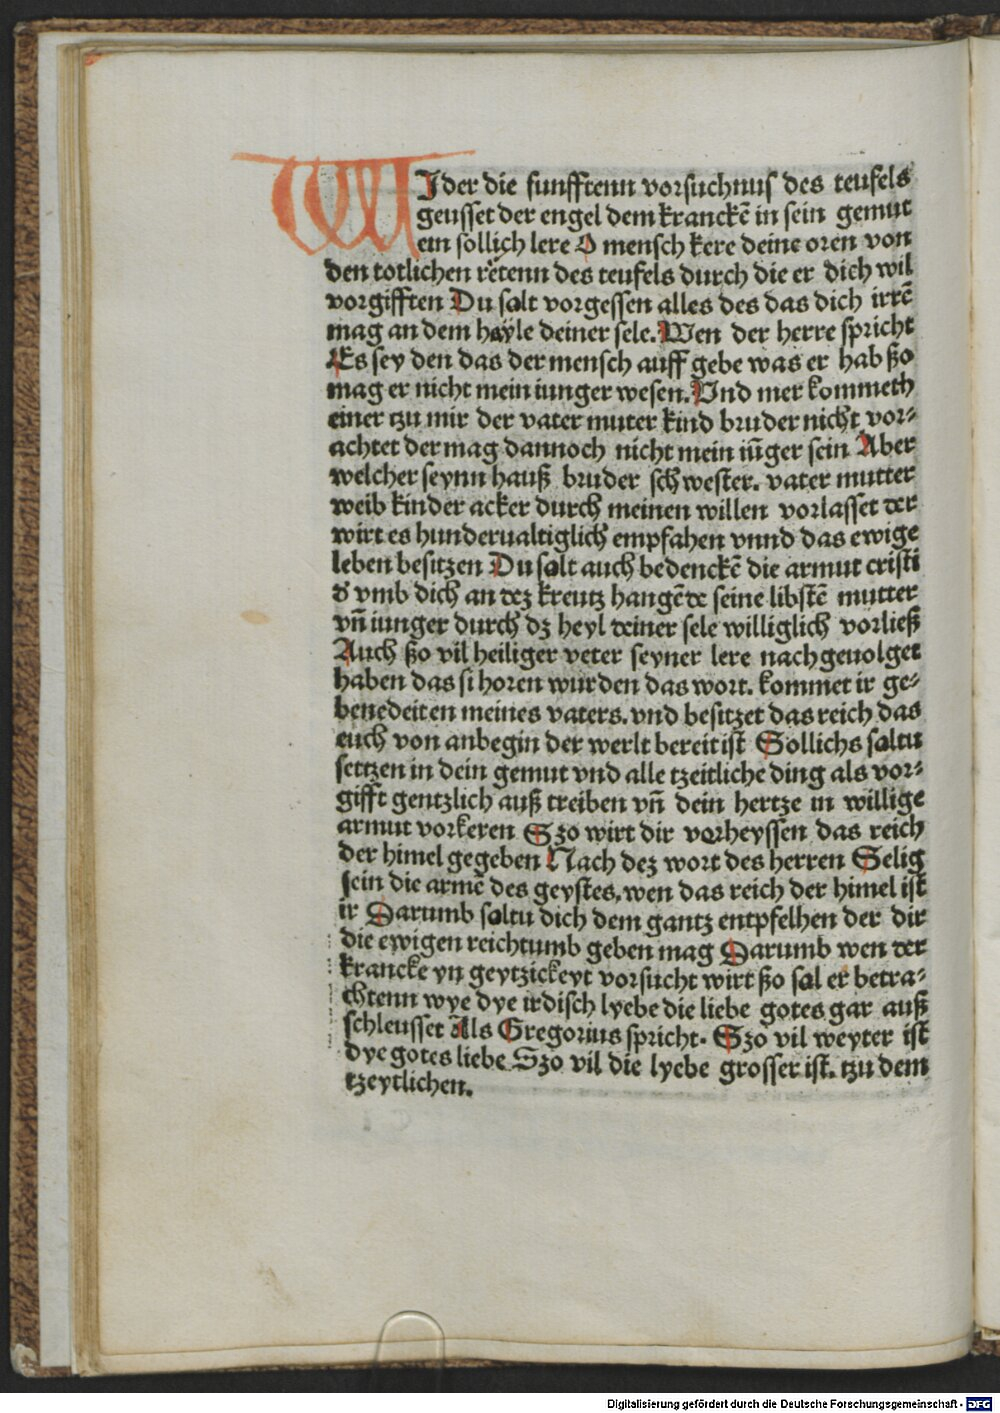 WIder die funfftenn vorsuchnus des teufels
geusset der engel dem kranckē in sein gemut
ein sollich lere O mensch kere deine oren von
den totlichen retenn des teufels durch die er dich wil
vorgifften Du salt vorgessen alles des das dich irrē
mag an dem hayle deiner sele. Wen der herre spricht
Es sey den das der mensch auff gebe was er hab ßo
mag er nicht mein iunger wesen. Vnd mer kommeth
einer tzu mir der vater muter kind bruder nicht vor⸗
achtet der mag dannoch nicht mein iūger sein Aber
welcher seynn hauß bruder schwester. vater mutter
weib kinder acker durch meinen willen vorlasset der
wirt es hunderualtiglich empfahen vnnd das ewige
leben besitzen Du salt auch bedenckē die armut cristi
d' vmb dich an dez kreutz hangēde seine libstē mutter
vn̄ iunger durch dz heyl deiner sele williglich vorließ
Auch ßo vil heiliger veter seyner lere nach geuolget
haben das si horen wurden das wort. kommet ir ge⸗
benedeiten meines vaters. vnd besitzet das reich das
euch von anbegin der werlt bereit ist Sollichs saltu
settzen in dein gemut vnd alle tzeitliche ding als vor⸗
gifft gentzlich auß treiben vn̄ dein hertze in willige
armut vorkeren Szo wirt dir vorheyssen das reich
der himel gegeben Nach dez wort des herren Selig
sein die armē des geystes. wen das reich der himel ist
ir Darumb saltu dich dem gantz entpfelhen der dir
die ewigen reichtumb geben mag Darumb wen der
krancke yn geytzickeyt vorsucht wirt ßo sal er betra⸗
chtenn wye dye irdisch lyebe die liebe gotes gar auß
schleusset Als Gregorius spricht. Szo vil weyter ist
dye gotes liebe Szo vil die lyebe grosser ist. tzu dem
tzeytlichen.
Digitalisierung gefördert durch die Deutsche Forschungsgemeinschaft - DFG